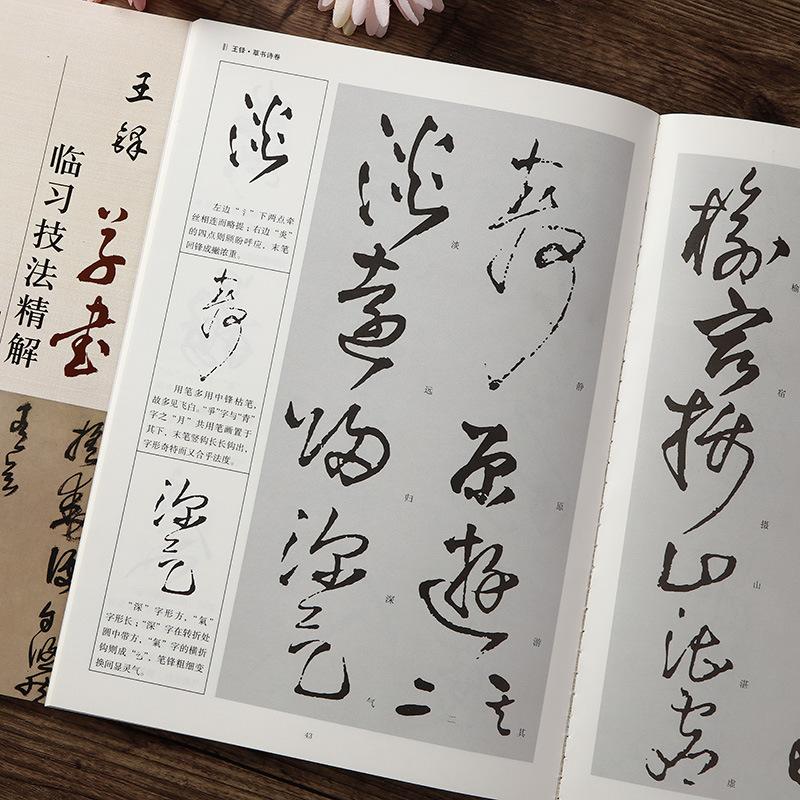 王铎
草书
临习技法精解
王铎·草书诗卷
淡
左边“氵”下两点牵
丝相连而略提；右边“炎”
的四点则顾盼呼应，末笔
回锋成撇浓重。
靜
用笔多用中锋枯笔，
故多见飞白。“爭”字与“青”
字之“月”共用笔画置于
其下，末笔竖钩长长钩出，
字形奇特而又合乎法度。
深氣
“深”字形方，“氣”
字形长；“深”字在转折处
圆中带方，“氣”字的横折
钩则成“乙”，笔锋粗细变
换间显灵气。
榆宿攝山湛虛
榆
宿
摄
山
湛
虚
靜原遊其
静
原
游
其
二
二
淡遠歸深氣
淡
远
归
深
气
43